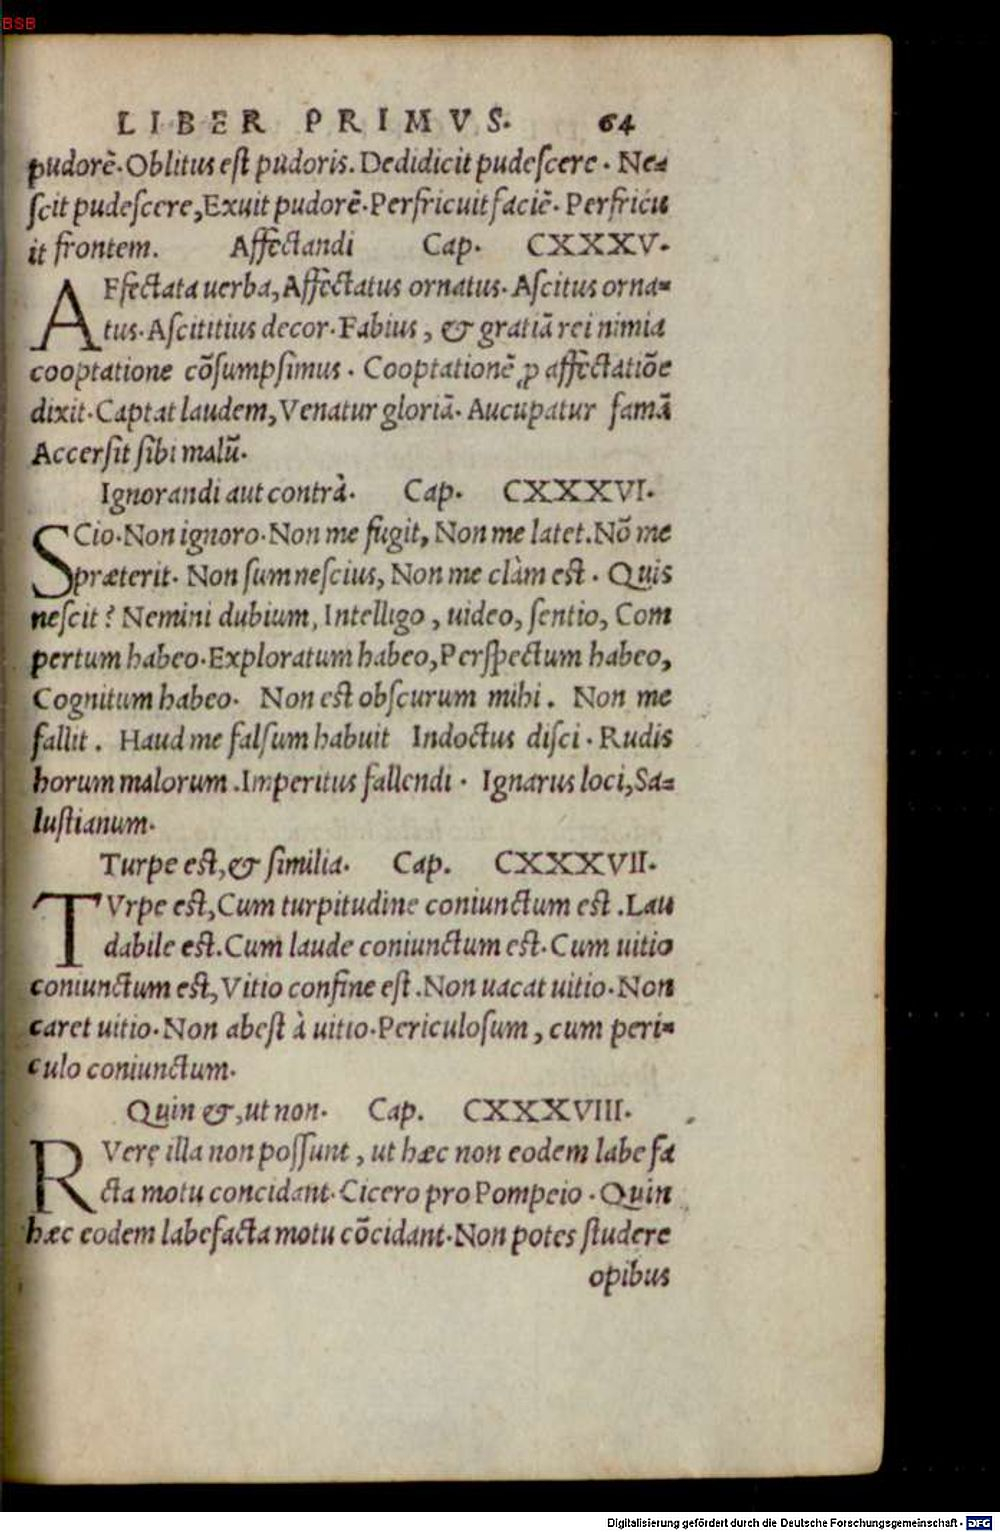 BSB
LIBER PRIMVS. 64
pudorē. Oblitus est pudoris. Dedidicit pudescere. Ne=
scit pudescere, Exuit pudorē. Perfricuit faciē. Perfricu
it frontem. Affectandi Cap. CXXXV.
AFfectata uerba, Affectatus ornatus. Ascitus orna=
tus. Ascititius decor. Fabius, & gratiā rei nimia
cooptatione cōsumpsimus. Cooptationē ꝓ affectatiōe
dixit. Captat laudem, Venatur gloriā. Aucupatur famā
Accersit sibi malū.
Ignorandi aut contrà. Cap. CXXXVI.
SCio. Non ignoro. Non me fugit, Non me latet. Nō me
præterit. Non sum nescius, Non me clàm est. Quis
nescit? Nemini dubium, Intelligo, uideo, sentio, Com
pertum habeo. Exploratum habeo, Perspectum habeo,
Cognitum habeo. Non est obscurum mihi. Non me
fallit. Haud me falsum habuit Indoctus disci. Rudis
horum malorum. Imperitus fallendi. Ignarus loci, Sa=
lustianum.
Turpe est, & similia. Cap. CXXXVII.
TVrpe est, Cum turpitudine coniunctum est. Lau
dabile est. Cum laude coniunctum est. Cum uitio
coniunctum est, Vitio confine est. Non uacat uitio. Non
caret uitio. Non abest à uitio. Periculosum, cum peri=
culo coniunctum.
Quin &, ut non. Cap. CXXXVIII.
RVerę illa non possunt, ut hæc non eodem labefa
cta motu concidant. Cicero pro Pompeio. Quin
hæc eodem labefacta motu cōcidant. Non potes studere
opibus
Digitalisierung gefördert durch die Deutsche Forschungsgemeinschaft - DFG